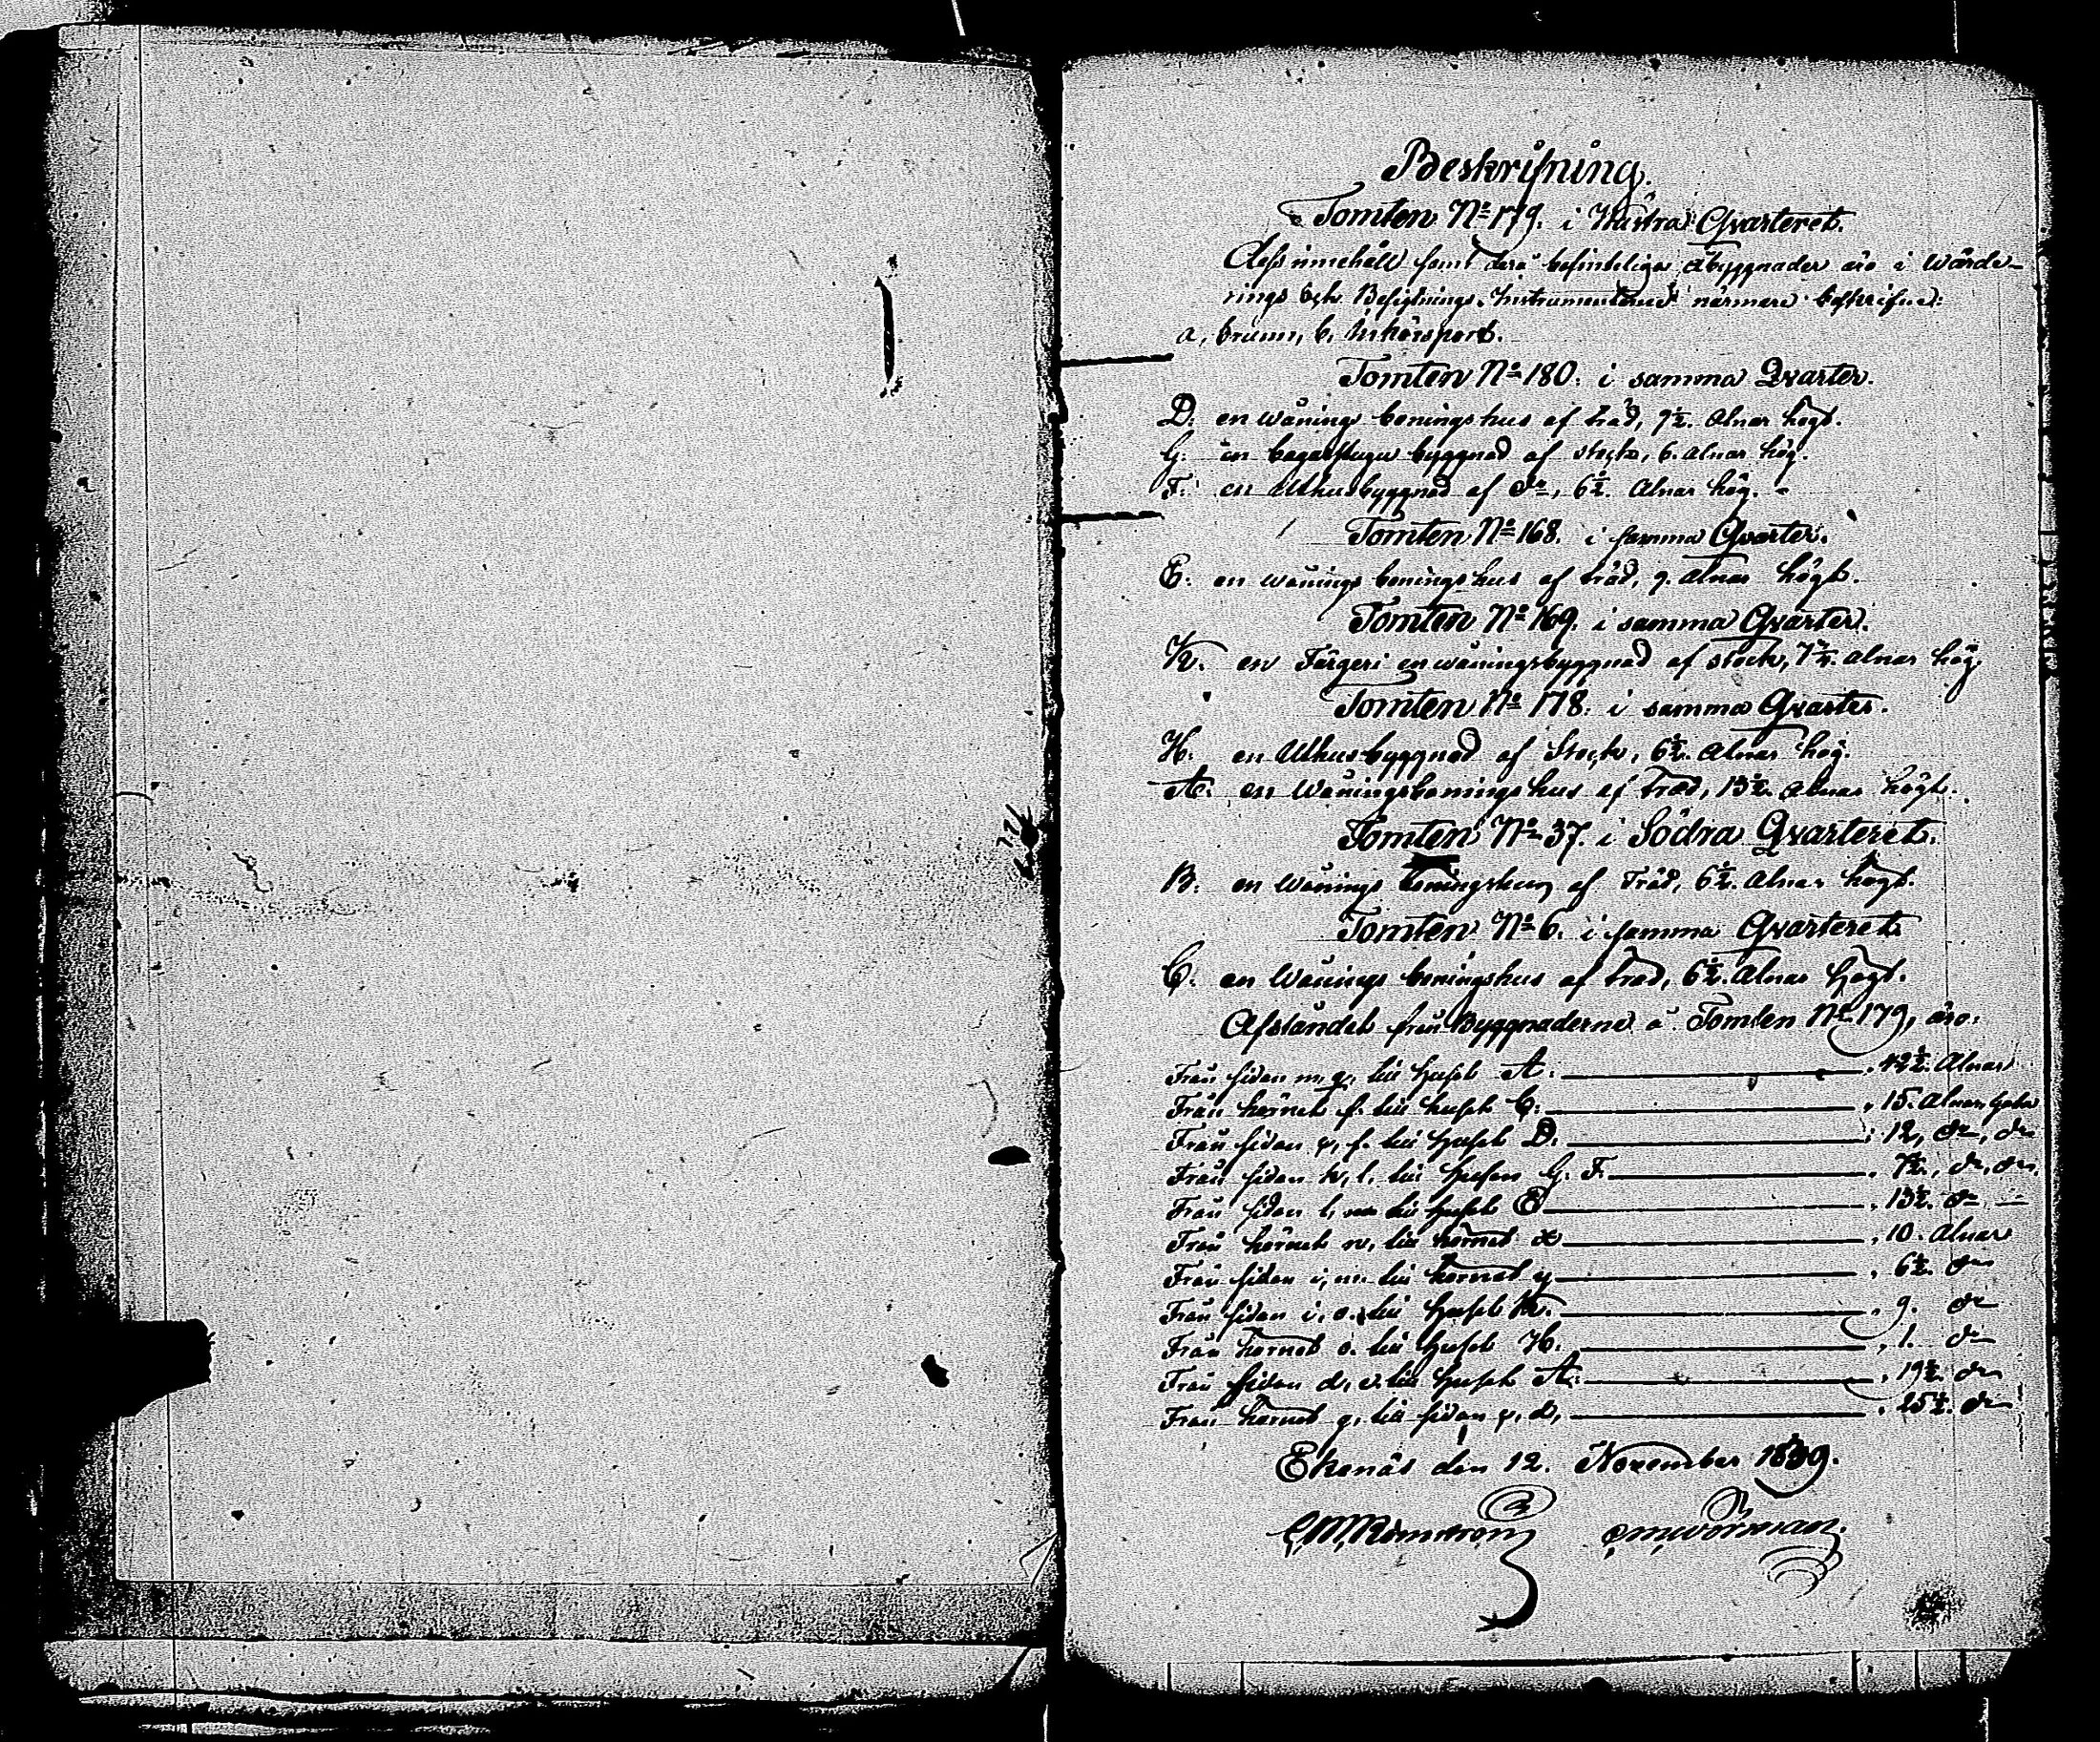 Beskrifning.
Tomten No 179. i Wästra Qvarteret.
Dess innehåll samt derå befinteliga åbyggnader äro i Wärde-
rings och Besigtnings-Instrumenterne närmare beskrifne:
a, brunn, b, Inkörsport.
Tomten No 180. i samma Qvarter.
D. en wånings boningshus af träd, 7½. alnar högt.
G. en bagarstugu byggnad af stock, 6. alnar hög.
F. en Uthusbyggnad af do, 6½. Alnar hög.
Tomten No 168. i samma Qvarter.
E. en wånings boningshus af träd, 9. alnar högt.
Tomten No 169. i samma Qvarter.
K. en Färgeri en wåningsbyggnad af stock, alnar hög.
Tomten No 178. i samma Qvarter.
H. en Uthusbyggnad af Stock, 6½. alnar hög.
A. en Wåningsboningshus af träd, 13½. alnar högt.
Tomten No 37. i Södra Qvarteret.
B. en Wånings boningshus af Träd, 6½. Alnar högt.
Tomten No 6. i samma Qvarteret.
C. en Wånings boningshus af träd, 6½. Alnar högt.
Afståndet från Byggnaderne å Tomten No 179, äro:
Från sidan m, q, till huset A. 42½. Alnar
Från hörnet f. till huset C. 15. alnar, gata
Från sidan f. till huset D. 12, do, do
Från sidan k, l, till husen G. F. 7½, do, do.
Från sidan l, m till huset E 13½. do
Från hörnet n, till hörnet x 10. Alnar
Från sidan i, m. till hörnet y 6½. do
Från sidan i, o. till huset K. 9. do
Från hörnet o. till huset H. 1. do
Från sidan d, till huset A. 19½. do
Från hörnet q, till sidan d, 25½. do
Ekenäs den 12. November 1839.